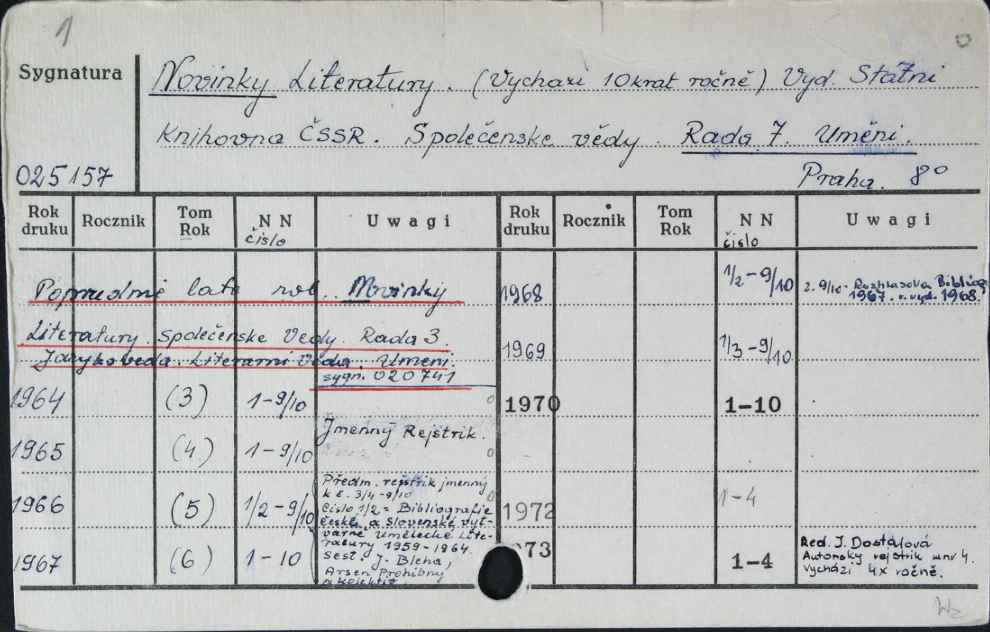 1
Sygnatura
Novinky Literatury. (Vychazí 10krat ročně) Vyd. Státni
Knihovna ČSSR. Společenske vědy. Rada 7. Uměni.
025157
Praha. 8°
Rok druku Rocznik Tom Rok NN čislo Uwagi Rok druku Rocznik Tom Rok NN čislo Uwagi
Poprzednie lata nos. Novinky
Literatury. Společenske Vedy. Rada 3.
Jazykoveda. Literarni Věda. Umeni.
sygn. 020741
1964 (3) 1-9/10
1965 (4) 1-9/10 Jmenný Rejstrik.
1966 (5) 1/2-9/10 Předm. rejstrik jmenný
k č. 3/4-9/10
Čislo 1/2 = Bibliografie
české a slovenské výt-
varné umělecké lite-
ratury 1959-1964.
Sest. J. Bleha,
Arsen Prohibný
a kolektiv
1967 (6) 1-10
1968 1/2-9/10 z. 9/10- Rozhlasova Bibliog.
1967. r. vyd. 1968.
1969 1/3-9/10
1970 1-10
1972 1-4
973 1-4 Red. J. Dostálová
Autorsky rejstrik w nr 4.
vychází 4x ročně.